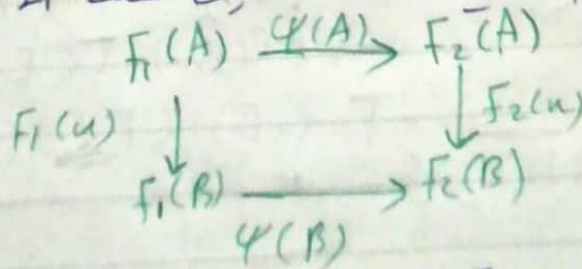 F₁(A) ψ(A) F₂(A)
F₁(u) F₂(u)
F₁(B) F₂(B)
ψ(B)